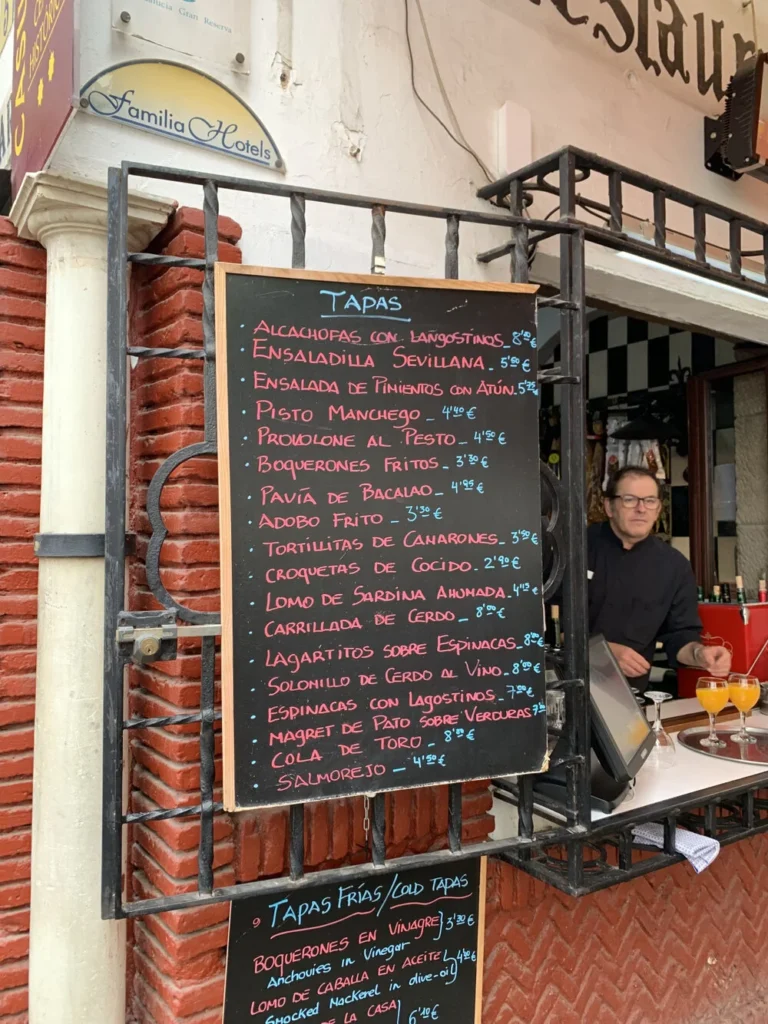 Gran Reserva
Familia Hotels
TAPAS
· ALCACHOFAS CON LANGOSTINOS_ 8'00€
· ENSALADILLA SEVILLANA - 5'50€
· ENSALADA DE PIMIENTOS CON ATÚN. 5'75€
· PISTO MANCHEGO _ 4'40€
· PROVOLONE AL PESTO _ 4'50€
· BOQUERONES FRITOS _ 3'30€
· PAVÍA DE BACALAO _ 4'95€
· ADOBO FRITO - 3'30€
· TORTILLITAS DE CAMARONES _ 3'50€
· CROQUETAS DE COCIDO - 2'90€
· LOMO DE SARDINA AHUMADA_ 4'15€
· CARRILLADA DE CERDO _ 8'00€
· LAGARTITOS SOBRE ESPINACAS_ 8'00€
· SOLOMILLO DE CERDO AL VINO_ 8'00€
· ESPINACAS CON LAGOSTINOS_ 7'00€
· MAGRET DE PATO SOBRE VERDURAS
· COLA DE TORO - 8'50€
· SALMOREJO _ 4'50€
TAPAS FRÍAS/COLD TAPAS
BOQUERONES EN VINAGRE } 3'30€
Anchovies in Vinegar
LOMO DE CABALLA EN ACEITE } 4'40€
Smocked Mackerel in olive-oil
DE LA CASA } 6'10€